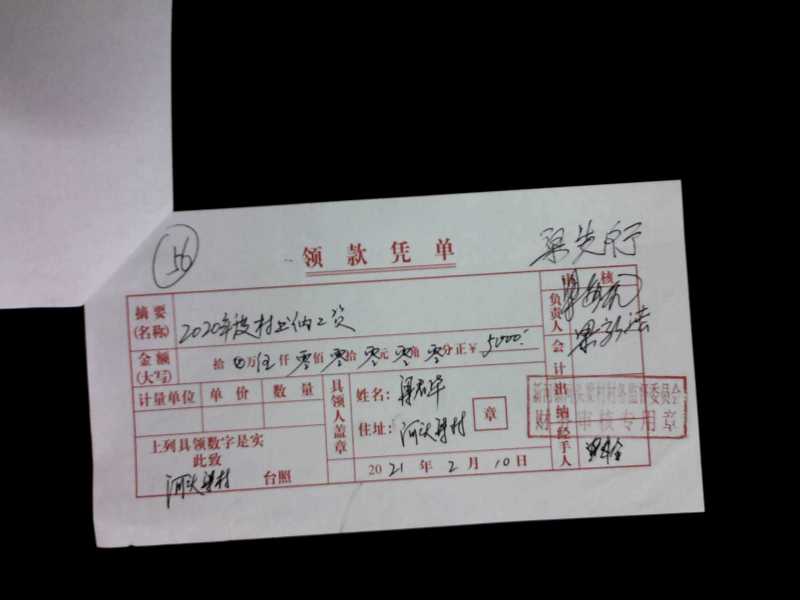 56
领款凭单
摘要(名称) 2020年度村上纳工资
金额(大写) 拾 万 伍 仟 零 佰 零 拾 零 元 零 角 零 分 正 ¥ 5000.
计量单位 单价 数量
具领人盖章
姓名:
住址: 河头梁村
章
上列具领数字是实
此致
河头梁村 台照
2021年2月10日
审核
负责人
会计
出纳
经手人
村财务监督委员会
财 审核专用章